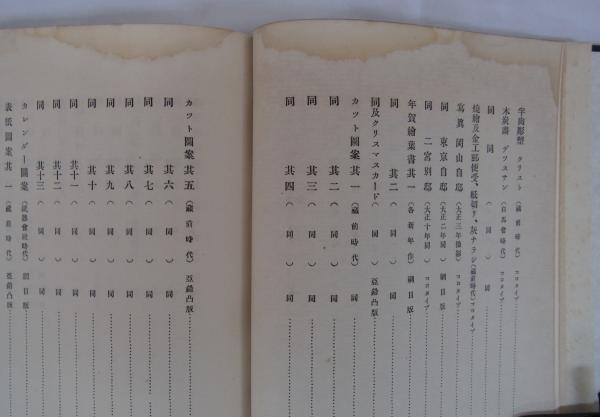 半肉彫塑 クリスト（蔵前時代）コロタイプ
木炭画 デツスサン（白馬會時代）コロタイプ
同 同（同）同
燒繪及金工郵便受、紙切リ、灰ナラシ（蔵前時代）コロタイプ
寫眞 岡山自邸（大正三年撮影）コロタイプ
同 東京自邸（大正二年同）網目版
同 二宮別邸（大正十年同）コロタイプ
年賀繪葉書其一（各新年作）網目版
同 其二（同）同
同及クリスマスカード（同）亞鉛凸版
カツト圖案其一（蔵前時代）同
同 其二（同）同
同 其三（同）同
同 其四（同）同
カツト圖案其五（蔵前時代）亞鉛凸版
同 其六（同）同
同 其七（同）同
同 其八（同）同
同 其九（同）同
同 其十（同）同
同 其十一（同）同
同 其十二（同）同
同 其十三（同）同
カレンダー圖案（會社時代）網目版
表紙圖案其一（蔵前時代）亞鉛凸版